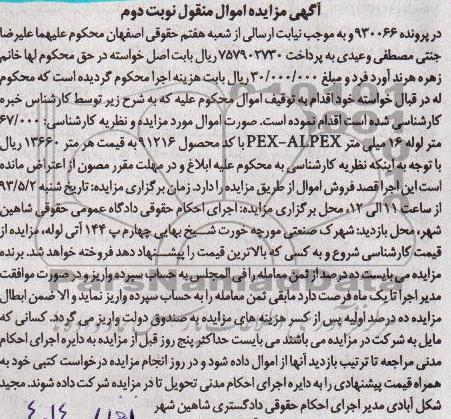 آگهی مزایده اموال منقول نوبت دوم
در پرونده ۹۳۰۰۶۶ و به موجب نیابت ارسالی از شعبه هفتم حقوقی اصفهان محکوم علیهما علیرضا
جنتی مصطفی وعیدی به پرداخت ۷۵۷۹۰۲۷۳۰ ریال بابت اصل خواسته در حق محکوم لها خانم
زهره هرند آورد فرد و مبلغ ۳۰/۰۰۰/۰۰۰ ریال بابت هزینه اجرا محکوم گردیده است که محکوم
له در قبال خواسته خود اقدام به توقیف اموال محکوم علیه که به شرح زیر توسط کارشناس خبره
کارشناسی شده است اقدام نموده است. صورت اموال مورد مزایده و نظریه کارشناسی: ۶۷/۰۰۰
متر لوله ۱۶ میلی متر PEX-ALPEX با کد محصول ۹۱۲۱۶ به قیمت هر متر ۱۳۶۶۰ ریال
با توجه به اینکه نظریه کارشناسی به محکوم علیه ابلاغ و در مهلت مقرر مصون از اعتراض مانده
است این اجرا قصد فروش اموال از طریق مزایده را دارد. زمان برگزاری مزایده: تاریخ شنبه ۹۳/۵/۲
از ساعت ۱۱ الی ۱۲، محل برگزاری مزایده: اجرای احکام حقوقی دادگاه عمومی حقوقی شاهین
شهر، محل بازدید: شهرک صنعتی مورچه خورت شیخ بهایی چهارم پ ۱۴۴ آتی لوله، مزایده از
قیمت کارشناسی شروع و به کسی که بالاترین قیمت را پیشنهاد دهد فروخته خواهد شد. برنده
مزایده می بایست ده درصد از ثمن معامله را فی المجلس به حساب سپرده واریز و در صورت موافقت
مدیر اجرا تا یک ماه فرصت دارد مابقی ثمن معامله را به حساب سپرده واریز نماید و الا ضمن ابطال
مزایده ده درصد اولیه پس از کسر هزینه های مزایده به صندوق دولت واریز می گردد. کسانی که
مایل به شرکت در مزایده می باشند می بایست حداکثر پنج روز قبل از مزایده به دایره اجرای احکام
مدنی مراجعه تا ترتیب بازدید آنها از اموال داده شود و در روز انجام مزایده درخواست کتبی خود به
همراه قیمت پیشنهادی را به دایره اجرای احکام مدنی تحویل تا در مزایده شرکت داده شوند. مجید
شکل آبادی مدیر اجرای احکام حقوقی دادگستری شاهین شهر
ParsNamadData